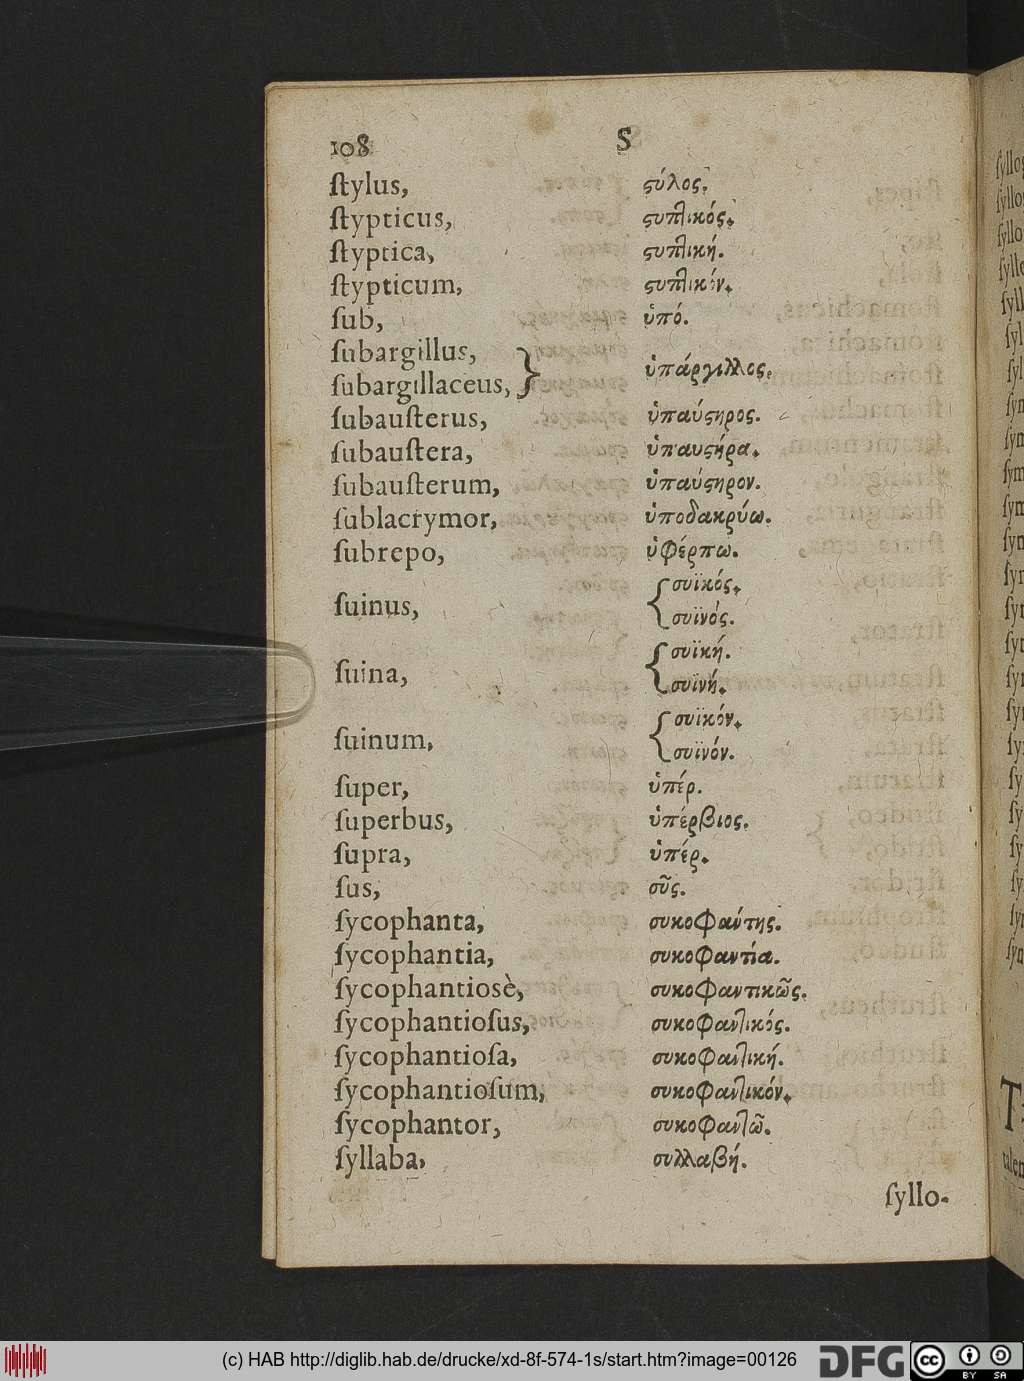 108 S
ſtylus, ϛύλος.
ſtypticus, ϛυπτικός.
ſtyptica, ϛυπτική.
ſtypticum, ϛυπτικόν.
ſub, ὑπό.
ſubargillus,
ſubargillaceus, } ὑπάργιλλος.
ſubauſterus, ὑπαύϛηρος.
ſubauſtera, ὑπαυϛήρα.
ſubauſterum, ὑπαύϛηρον.
ſublacrymor, ὑποδακρύω.
ſubrepo, ὑφέρπω.
ſuinus, { συϊκός.
συϊνός.
ſuina, { συϊκή.
συϊνή.
ſuinum, { συϊκόν.
συϊνόν.
ſuper, ὑπέρ.
ſuperbus, ὑπέρβιος.
ſupra, ὑπέρ.
ſus, σῦς.
ſycophanta, συκοφαύτης.
ſycophantia, συκοφαντία.
ſycophantiosè, συκοφαντικῶς.
ſycophantioſus, συκοφαντικός.
ſycophantioſa, συκοφαντική.
ſycophantioſum, συκοφαντικόν.
ſycophantor, συκοφαντῶ.
ſyllaba, συλλαβή.
ſyllo-
(c) HAB http://diglib.hab.de/drucke/xd-8f-574-1s/start.htm?image=00126
DFG
cc BY SA